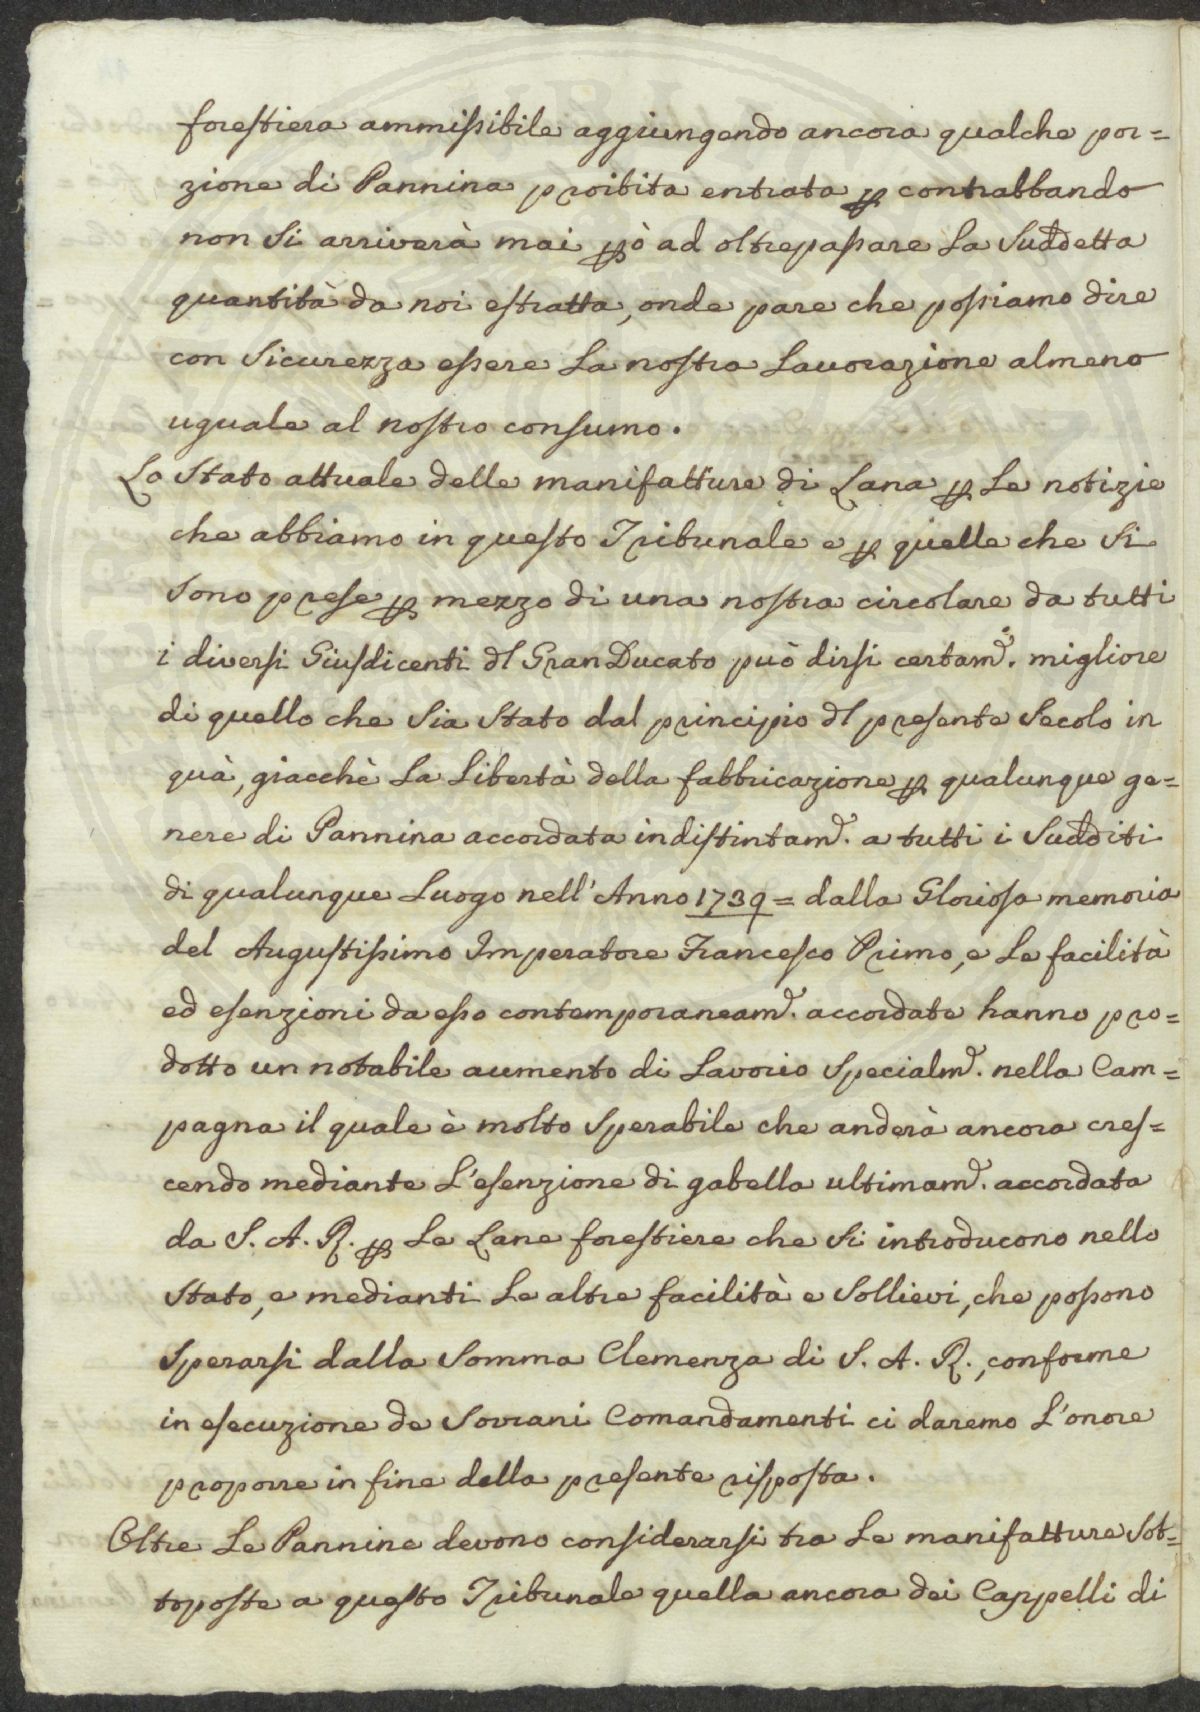 forestiera ammissibile aggiungendo ancora qualche por=
zione di Pannina proibita entrata ꝑ contrabbando
non si arriverà mai ꝑò ad oltrepassare la suddetta
quantità da noi estratta, onde pare che possiamo dire
con sicurezza essere la nostra lavorazione almeno
uguale al nostro consumo.
Lo stato attuale delle manifatture di Lana ꝑ le notizie
che abbiamo in questo Tribunale e ꝑ quelle che si
sono prese ꝑ mezzo di una nostra circolare da tutti
i diversi Giusdicenti dl GranDucato può dirsi certamᵉ. migliore
di quello che sia stato dal principio dl presente secolo in
quà, giacchè la libertà della fabbricazione ꝑ qualunque ge=
nere di Pannina accordata indistintamᵉ. a tutti i sudditi
di qualunque Luogo nell'Anno 1739= dalla Gloriosa memoria
del Augustissimo Imperatore Francesco Primo, e le facilità
ed esenzioni da esso contemporaneamᵉ. accordate hanno pro=
dotto un notabile aumento di Lavorio specialmᵉ. nella Cam=
pagna il quale è molto sperabile che anderà ancora cres=
cendo mediante l'esenzione di gabella ultimamᵉ. accordata
da S. A. R. ꝑ le Lane forestiere che si introducono nello
stato, e medianti le altre facilità e sollievi, che possono
sperarsi dalla somma Clemenza di S. A. R., conforme
in esecuzione de sovrani Comandamenti ci daremo l'onore
proporre in fine della presente risposta.
Oltre le Pannine devono considerarsi tra le manifatture sot=
toposte a questo Tribunale quella ancora dei Cappelli di